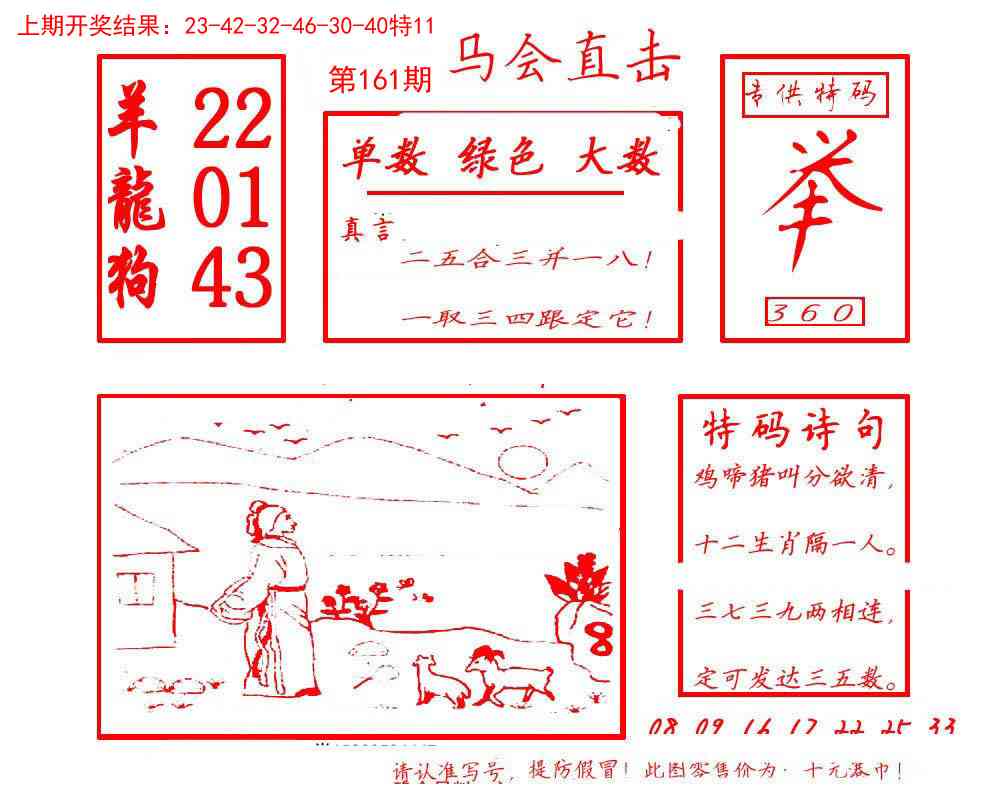 上期开奖结果：23-42-32-46-30-40特11
第161期 马会直击
羊 22
龍 01
狗 43
单数 绿色 大数
真言
二五合三并一八！
一取三四跟定它！
专供特码
举
360
特码诗句
鸡啼猪叫分欲清，
十二生肖隔一人。
三七三九两相连，
定可发达三五数。
8
08 09 16 17 22 25 33
请认准写号，提防假冒！此图零售价为·十元港巾！